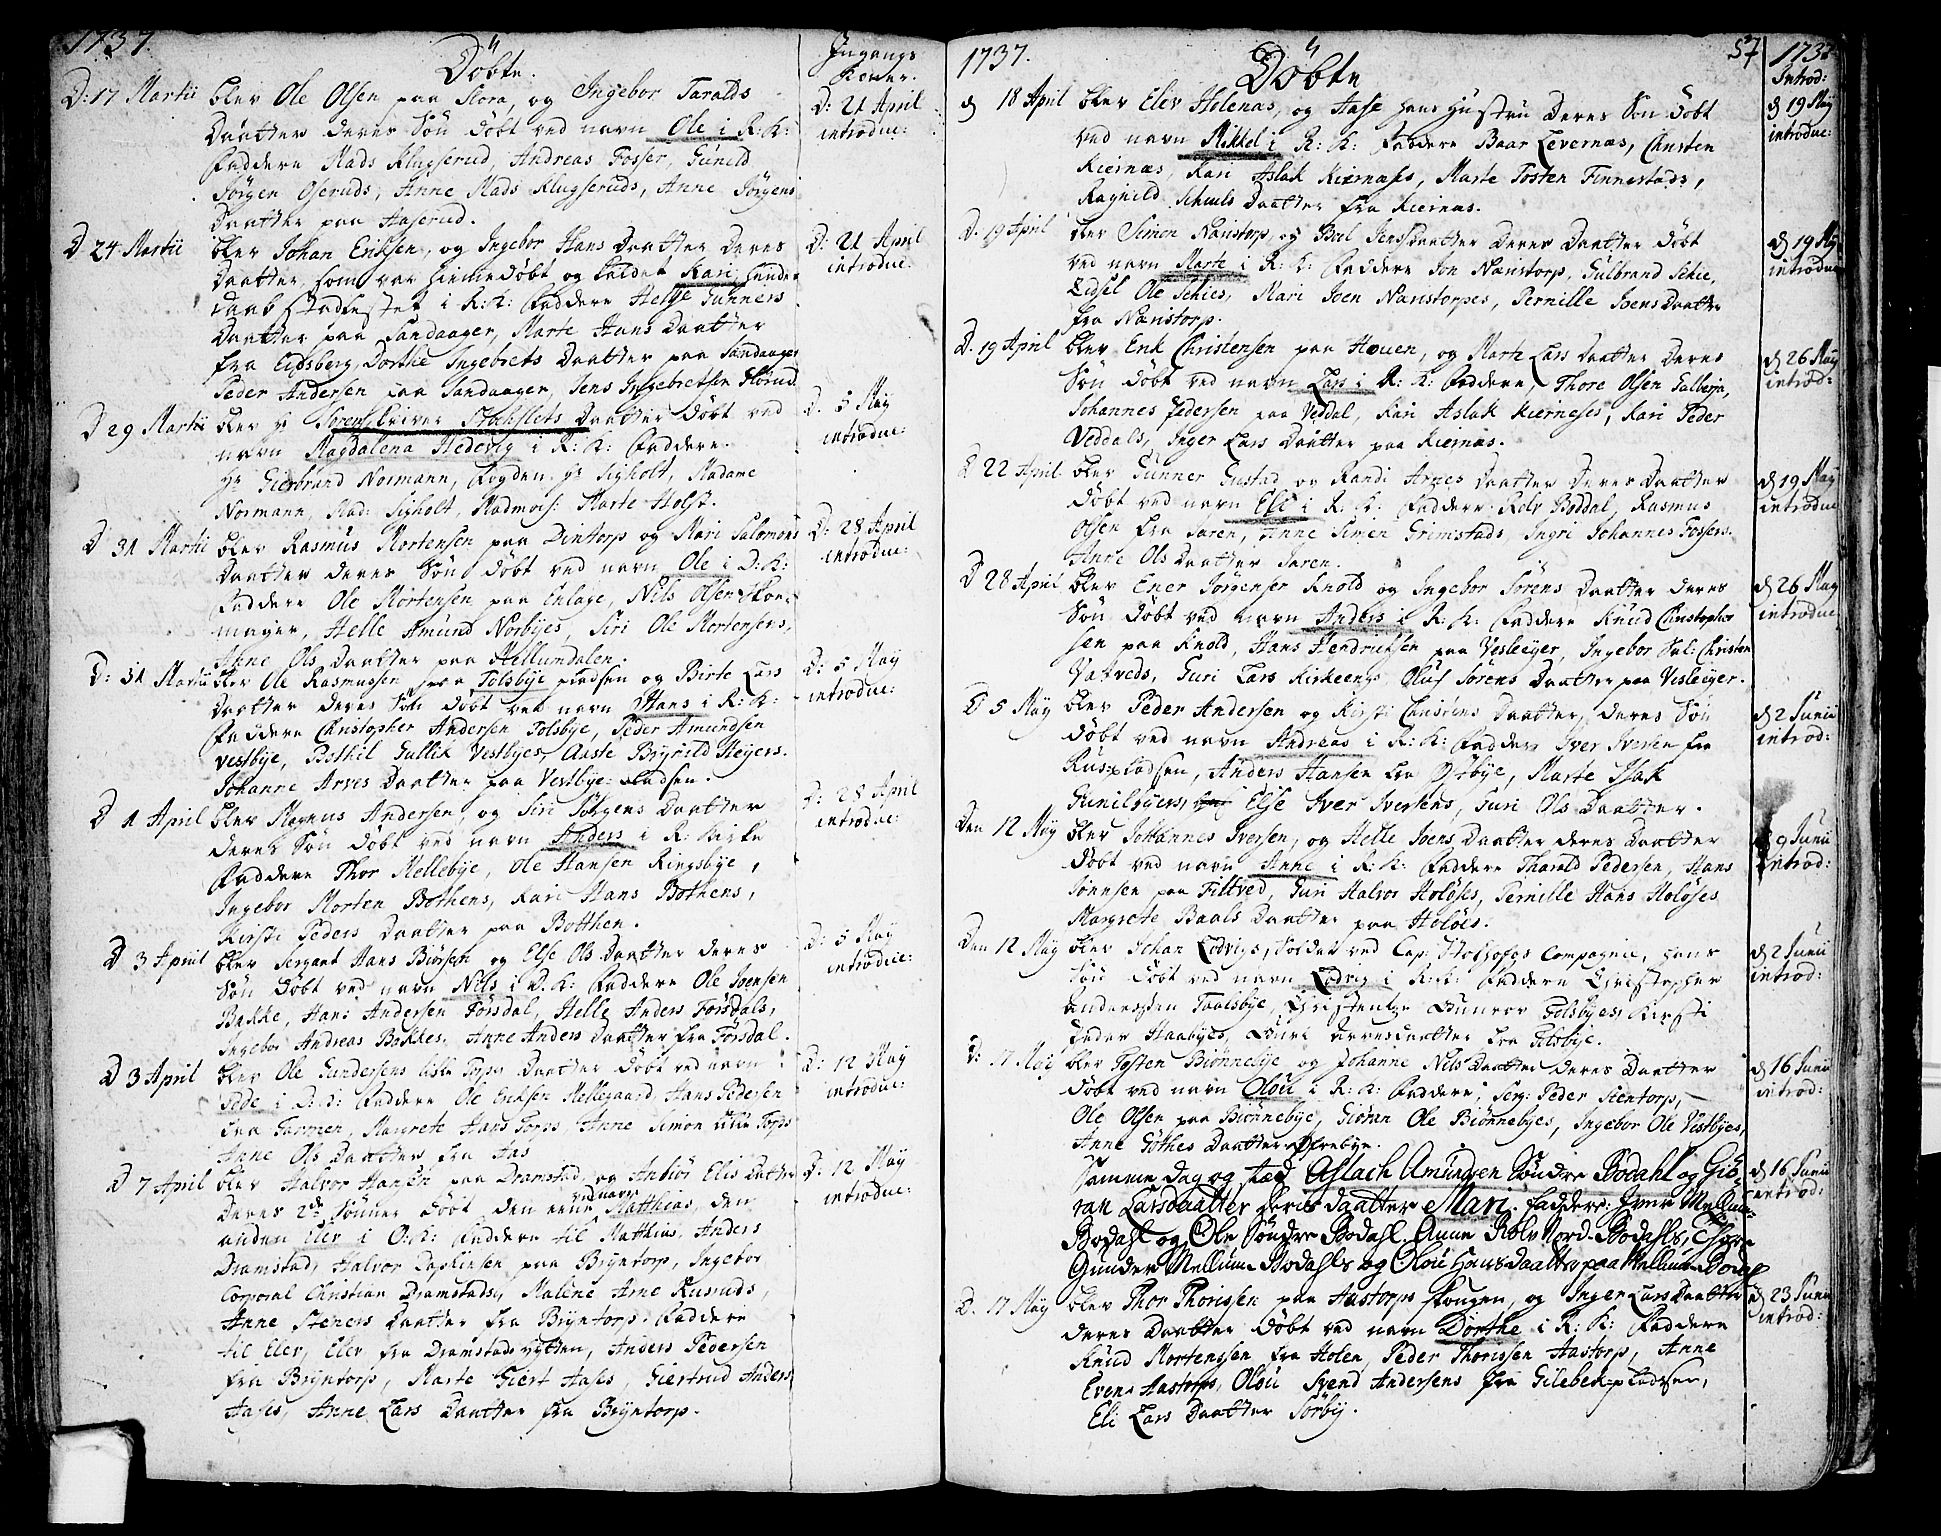 1737.
Döbte.
Ingangs
Koner.
D: 17 Martii blev Ole Olsen paa Stora, og Ingebor Taralds
Daatter deres Sön döbt ved navn Ole i R: K:
Faddere Mads Klugserud, Andreas Fosser, Gunild
Jörgen Oseruds, Anne Mads Klugseruds, Anne Jörgens
Daatter paa Haserud.
D: 21 April
introduc:
D 24 Martii blev Johan Eriksen, og Ingebor Hans Daatter deres
Daatter som var hiemedöbt og kaldet Kari hendes
daab stadfestet i R: K: Faddere Helge Gunners
Daatter paa Sandaager, Marte Hans Daatter
fra Eidsberg, Dorthe Ingebrets Daatter paa Sandaager
Peder Andersen paa Sandaager, Jens Ingebretsen
D: 21 April
introduc:
D 29 Martii blev Hr Sorenskriver Daatter döbt ved
navn Magdalena Hedevig i R: K: Faddere
Hr Giertrand Normann, Fogden Hr Sigholt, Madame
Normann, Mad: Sigholt, Madmois: Marte Holst.
D: 5 May
introduc:
D 31 Martii blev Rasmus Mortensen paa Dintorp og Mari Salomons
Daatter deres Sön döbt ved navn Ole i D: K:
Faddere Ole Mortensen paa Enlage, Nils Olsen Skoe-
mager, Helle Amund Norbyes, Siri Ole Mortensens,
Anne Ols Daatter paa Mellumdalen.
D: 28 April
introduc:
D: 31 Martii blev Ole Rasmussen paa Folsbye pladsen og Birte Lars
Daatter deres Sön döbt ved navn Hans i R: K:
Faddere Christopher Andersen Folsbye, Peder Amundsen
Vestbye, Bothil Gullik Vestbyes, Aaste Brynild Heyers.
Johanne Arves Daatter paa Vestbye-pladsen.
D: 5 May
introduc:
D 1 April blev Magnus Andersen, og Siri Jörgens Daatter
deres Sön döbt ved navn Anders i R: Kirke
Faddere Thor Mellebye, Ole Hansen Ringsbye,
Ingebor Morten Bothens, Kari Hans Bothens,
Kirsti Peders Daatter paa Botthen.
D: 28 April
introduc:
D 3 April blev Sergant Hans Biörsen og Else Ols Daatter deres
Sön döbt ved navn Nils i D. K: Faddere Ole Joensen
Bakke, Hans Andersen Forsdal, Helle Anders Forsdals,
Ingebor Andreas Bakkes, Anne Anders Daatter fra Forsdal.
D: 5 May
introduc:
D 3 April blev Ole Gundersens liste Torps Daatter döbt ved navn
i D: K: Faddere Ole Eriksen Mellegaard, Hans Pedersen
fra Tarmen, Margrete Hans Torps, Anne Simon lille Torps
Anne Ols Daatter fra Aas
D: 12 May
introduc:
D 7 April blev Halvor Hansen paa Dramstad, og Anbiör Elis Datter
deres 2de Sönner döbt, den eene ved navn Matthias, den
anden Elev i O: K: Faddere til Matthias, Anders
Dramstad, Halvor paa Bryntorp, Ingebor
Corporal Christian Dramstads, Malene Arne Rusruds,
Anne Steners Daatter fra Bryntorp. Faddere
til Elev, Elev fra Dramstads hytten, Anders Pedersen
fra Bryntorp, Marte Giert Aases, Giertrud Anders
Aases, Anne Lars Daatter fra Bryntorp.
D: 12 May
introduc:
1737.
Döbte
57
1737
Introd:
D 18 April blev Elev Helenas, og Aase hans Hustru deres Sön döbt
ved navn Mikkel i R: K: Faddere Baar Levernæs, Christen
Kiernæs, Kari Aslak Kiernæses, Marte Tosten Finnestads,
Ragnild Schuuls Daatter fra Kiernæs.
D 19 May
introduc:
D. 19 April blev Simen Nanstorp, og Boel Jens Daatter deres Daatter döbt
ved navn Marte i R: K: Faddere Jon Nanstorp, Gulbrand Schie,
Eidsel Ole Schies, Mari Joen Nanstorpes, Pernille Joens Daatter
fra Nanstorp.
D 19 May
introduc
D. 19 April blev Erik Christensen paa Houen, og Marte Lars Daatter deres
Sön döbt ved navn Lars i R: K: Faddere, Thore Olsen Galberja,
Johannes Pedersen paa Veddal, Kari Aslak Kierneses, Kari Peder
Veddals, Inger Lars Daatter paa Kiernæs.
D 26 May
introd:
D 22 April blev Gunner Gustad og Randi Arnes Daatter deres Daatter
döbt ved navn Else i R: K: Faddere Rolv Boddal, Rasmus
Olsen fra Saren, Anne Simen Grimstads, Ingri Johannes Fossers.
Anne Ols Daatter Saren.
D 19 May
introduc
D 28 April blev Ener Jörgenser Knold og Ingebor Sörens Daatter deres
Sön döbt ved navn Anders i R: K: Faddere Knud Christopher
sen paa Knold, Hans Hendricksen paa Vesleöyer, Ingebor Sal: Christen
Vatveds, Guri Lars Kirkeengs, Oluf Sörens Daatter paa Vesleöyer.
D 26 May
introduc
D 5 May blev Peder Andersen og Kirsti Daatter, deres Sön
döbt ved navn Andreas i R: K: Faddere Iver Iversen fra
Rus-pladsen, Anders Hansen fra Östbye, Marte Isak
Gunilröyers, Else Iver Iversens, Guri Ols Daatter.
D 2 Junii
introd:
Den 12 May blev Johannes Iversen, og Helle Joens Daatter deres Daatter
döbt ved navn Anne i R: K: Faddere Tharald Pedersen, Hans
Jönnsen paa Filtved, Guri Halvor Holöses, Pernille Hans Holöses
Margrete Baals Daatter paa Holöes.
D 9 Junii
introd:
Den 12 May blev Johan Lodvigs, Soldat ved Cap: Compagnie, hans
Sön döbt ved navn Lodvig i R: K: Faddere Christopher
andersen Foulsbye, Christentze Gunvor Folsbyes, Kirsti
Peder Haabyes, Daatter fra Folsbye.
D 2 Junii
introd:
D: 17 May blev Tosten Biönnebye og Johanne Nils Daatter deres Daatter
döbt ved navn Olöu i R: K: Faddere, Serg: Peder Sientorp,
Ole Olsen paa Biönnebye, Giöran Ole Biönnebyes, Ingebor Ole Vestbyes,
Anne Göthes Daatter Öfrebye.
D 16 Junii
introd:
Samme dag og stæd Aslach Amundsen Söndre Bodahl og Giö-
ran Larsdaatter deris daatter Mari. faddere: Iver Mellum-
Bodahl og Ole Söndre Bodahl. Anne Rolv Nord-Bodahls, Thore
Gunder Mellum Bodahls og Olöu Hansdaatter paa Mellum Bodahl
D 16 Junii
introd:
D. 17 May blev Thor Thorissen paa Aastorps skougen, og Inger Lars Daatter
deres Daatter döbt ved navn Dorthe i R: K: Faddere
Knud Mortenssen fra Holen, Peder Thorissen Aastorp, Anne
Even Aastorps, Olöu Svend Andersens fra Gileberg-pladsen,
Eli Lars Daatter Sörby.
D 23 Junii
introd: